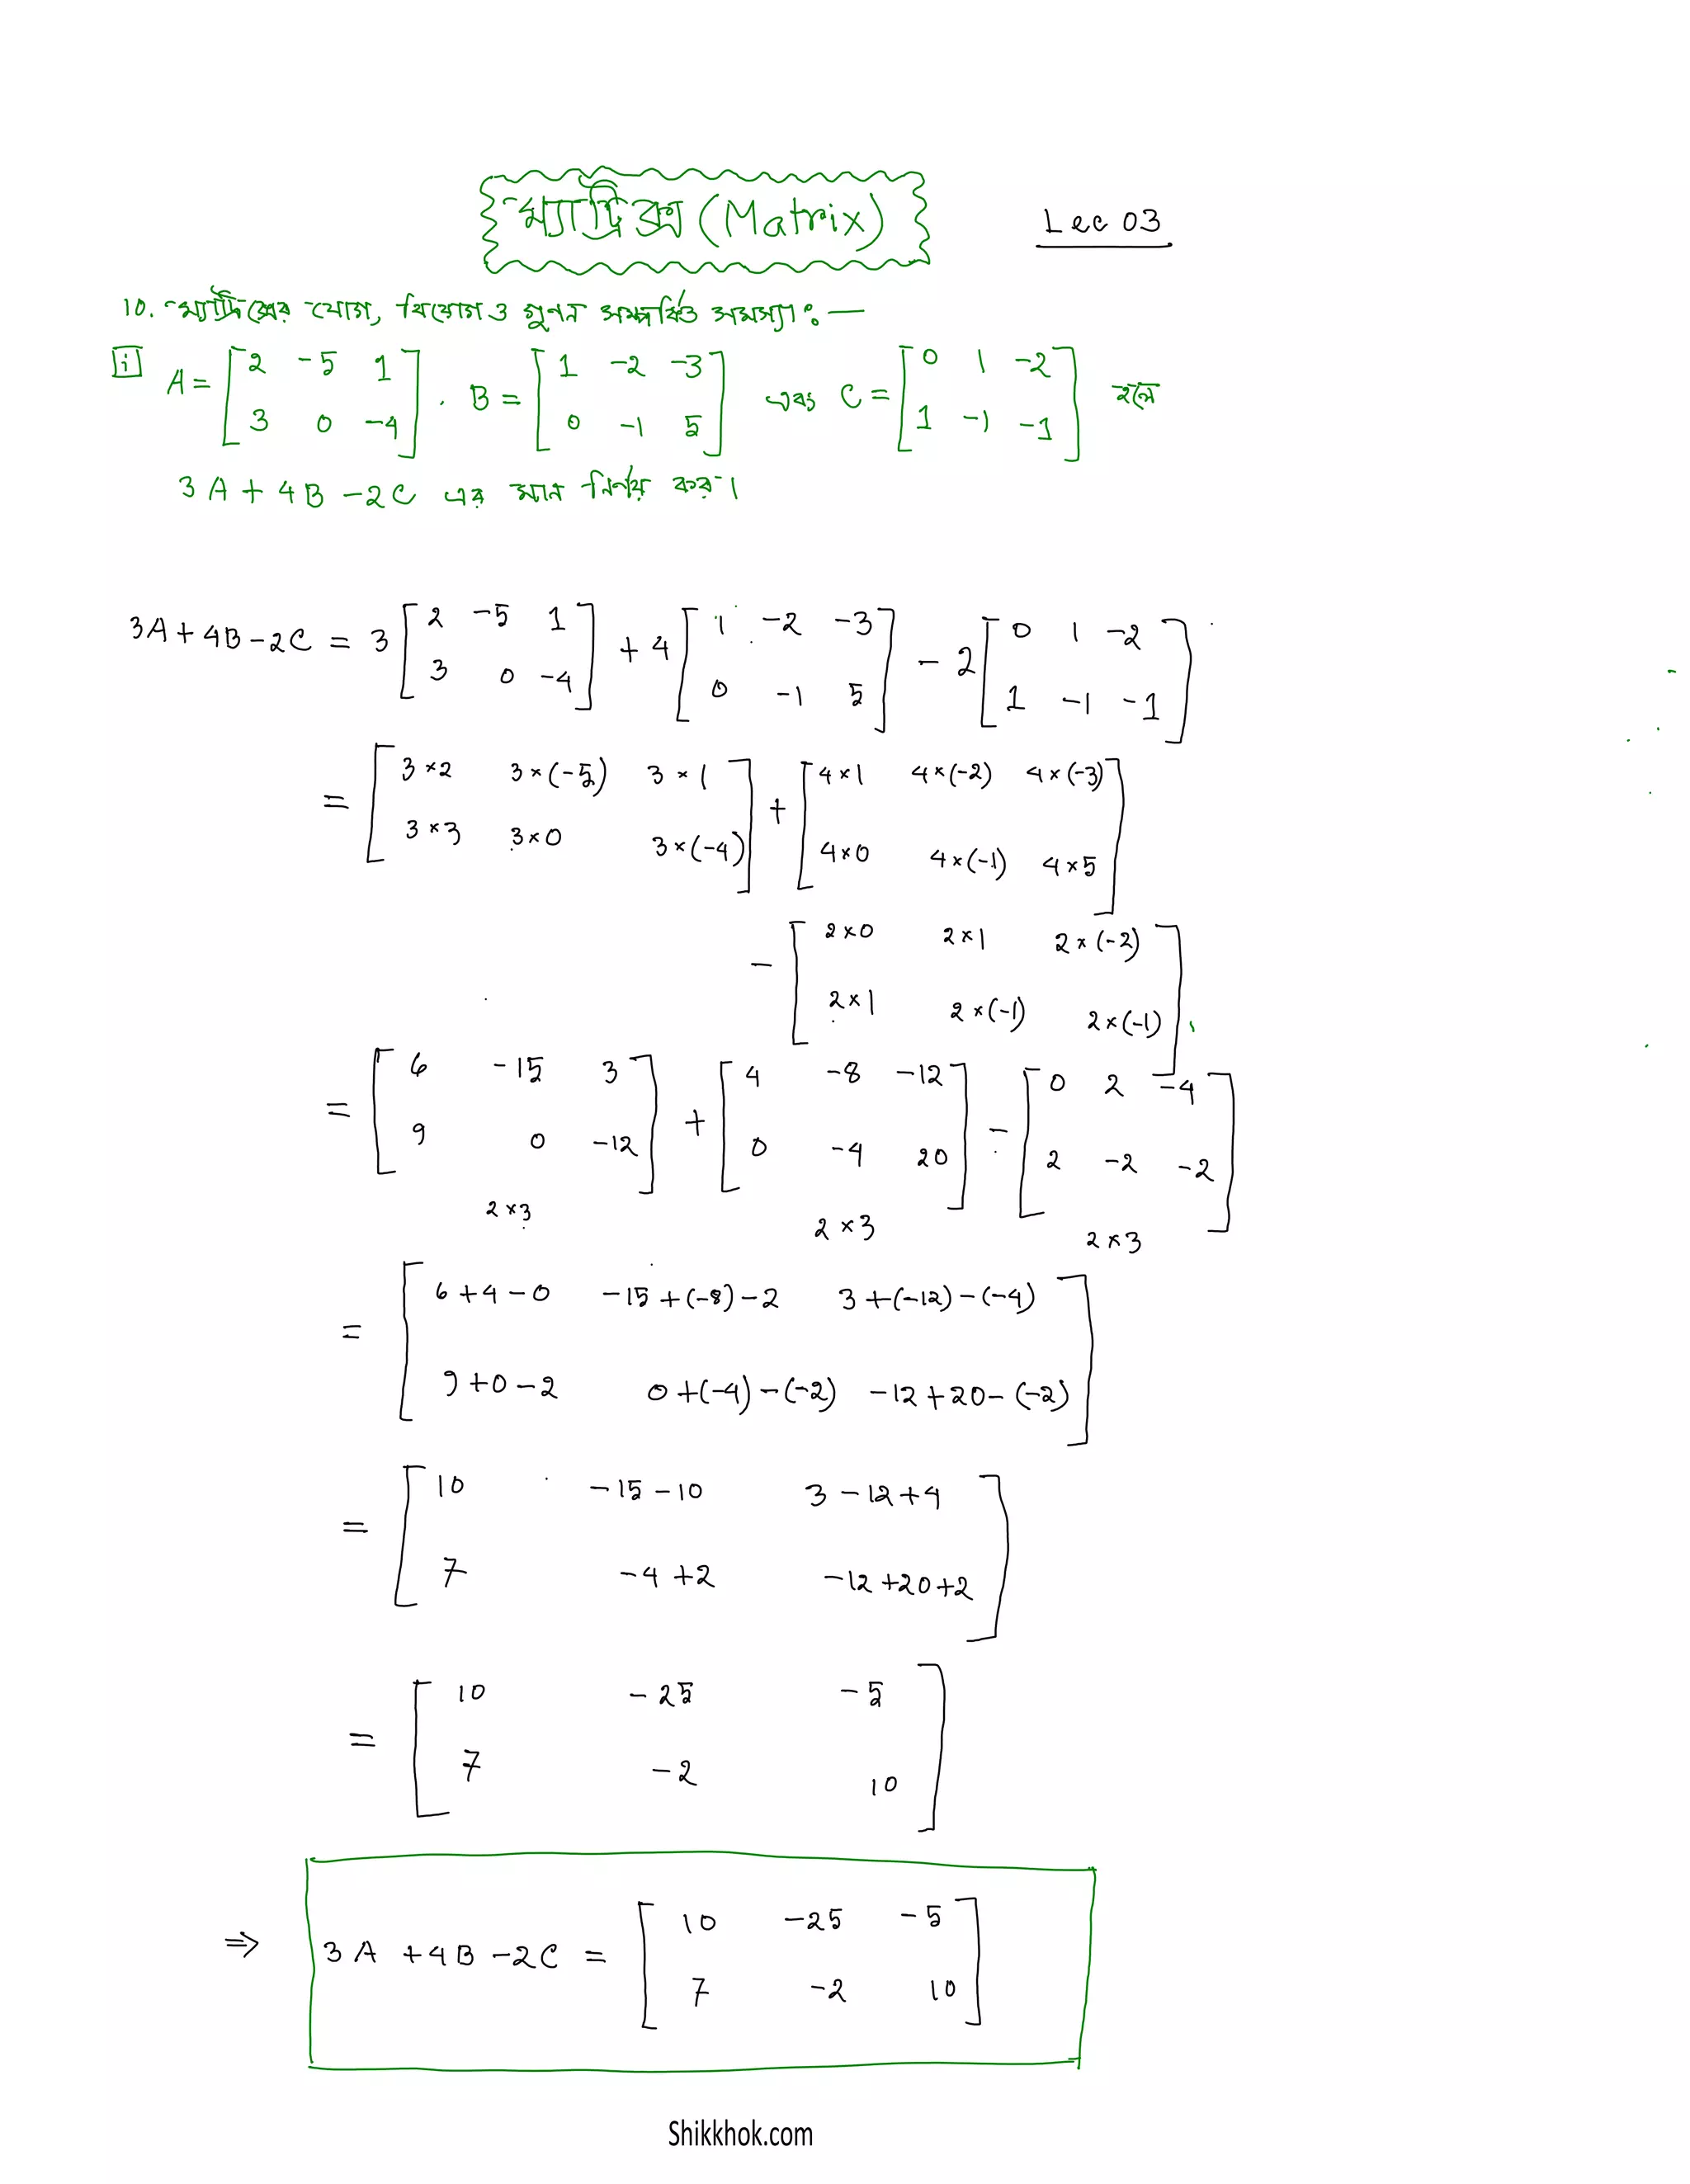 ম্যাট্রিক্স (Matrix)
Lec 03
10. ম্যাট্রিক্সের যোগ, বিয়োগ ও গুণন সম্পর্কিত সমস্যা ঃ—
i A = [2 -5 1
3 0 -4] . B = [1 -2 -3
0 -1 5] এবং C = [0 1 -2
1 -1 -1] হলে
3A + 4B - 2C এর মান নির্ণয় কর।
3A + 4B - 2C = 3 [2 -5 1
3 0 -4] + 4 [1 -2 -3
0 -1 5] - 2 [0 1 -2
1 -1 -1]
= [3×2 3×(-5) 3×1
3×3 3×0 3×(-4)] + [4×1 4×(-2) 4×(-3)
4×0 4×(-1) 4×5]
- [2×0 2×1 2×(-2)
2×1 2×(-1) 2×(-1)]
= [6 -15 3
9 0 -12] + [4 -8 -12
0 -4 20] - [0 2 -4
2 -2 -2]
2×3 2×3 2×3
= [6+4-0 -15+(-8)-2 3+(-12)-(-4)
9+0-2 0+(-4)-(-2) -12+20-(-2)]
= [10 -15-10 3-12+4
7 -4+2 -12+20+2]
= [10 -25 -5
7 -2 10]
⇒ 3A + 4B - 2C = [10 -25 -5
7 -2 10]
Shikkhok.com